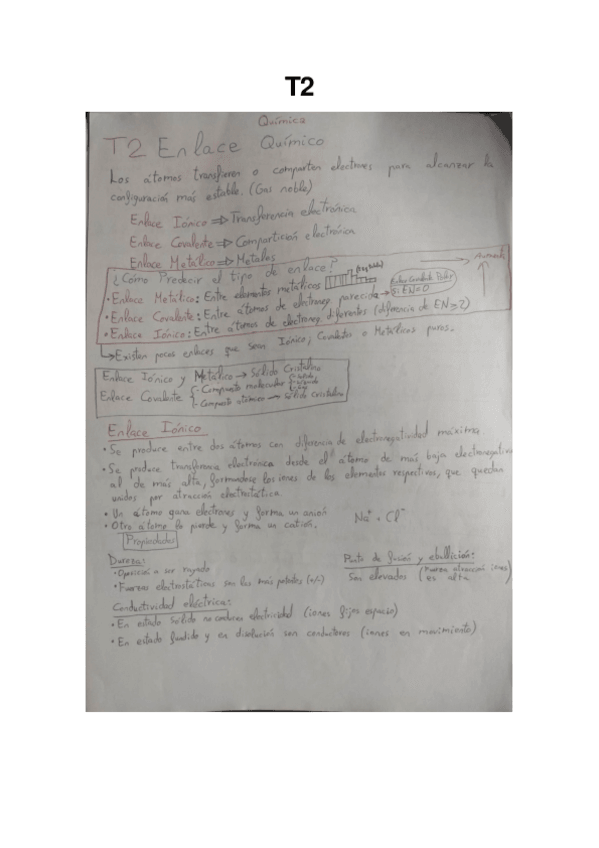 T2
Química
T2 Enlace Químico
Los átomos transfieren o comparten electrones para alcanzar la
configuración más estable. (Gas noble)
Enlace Iónico => Transferencia electrónica
Enlace Covalente => Compartición electrónica
Enlace Metálico => Metales
¿Cómo Predecir el tipo de enlace?
Aumenta
• Enlace Metálico: Entre elementos metálicos
Enlace Covalente Polar
• Enlace Covalente: Entre átomos de electroneg. parecida → Si EN=0
• Enlace Iónico: Entre átomos de electroneg. diferentes (diferencia de EN≥2)
↳ Existen pocos enlaces que sean Iónico, Covalentes o Metálicos puros.
Enlace Iónico y Metálico → Sólido Cristalino
Enlace Covalente {- Compuesto molecular {-Sólido -Líquido
- Compuesto atómico → sólido cristalino
Enlace Iónico
• Se produce entre dos átomos con diferencia de electronegatividad máxima.
• Se produce transferencia electrónica desde el átomo de más baja electronegativi
al de más alta, formandose los iones de los elementos respectivos, que quedan
unidos por atracción electrostática.
• Un átomo gana electrones y forma un anión
Na⁺ · Cl⁻
• Otro átomo lo pierde y forma un catión.
Propiedades
Dureza:
• Oposición a ser rayado
• Fuerzas electrostáticas son las más potentes (+/-)
Punto de fusión y ebullición:
Son elevados (fuerza atracción iones es alta)
Conductividad eléctrica:
• En estado sólido no conduce electricidad (iones fijos espacio)
• En estado fundido y en disolución son conductores (iones en movimiento)